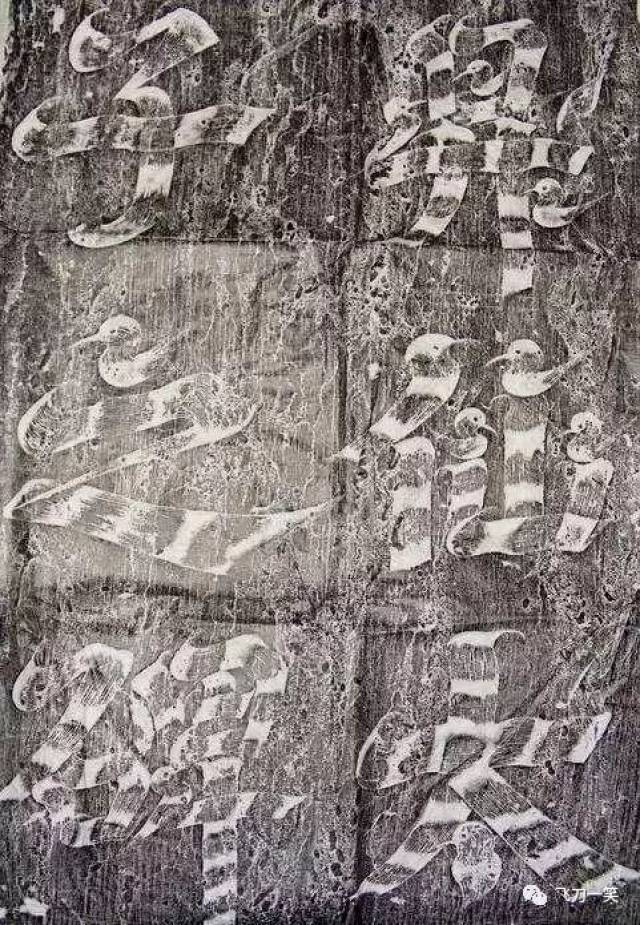 昇仙太
子之碑
飞刀一笑